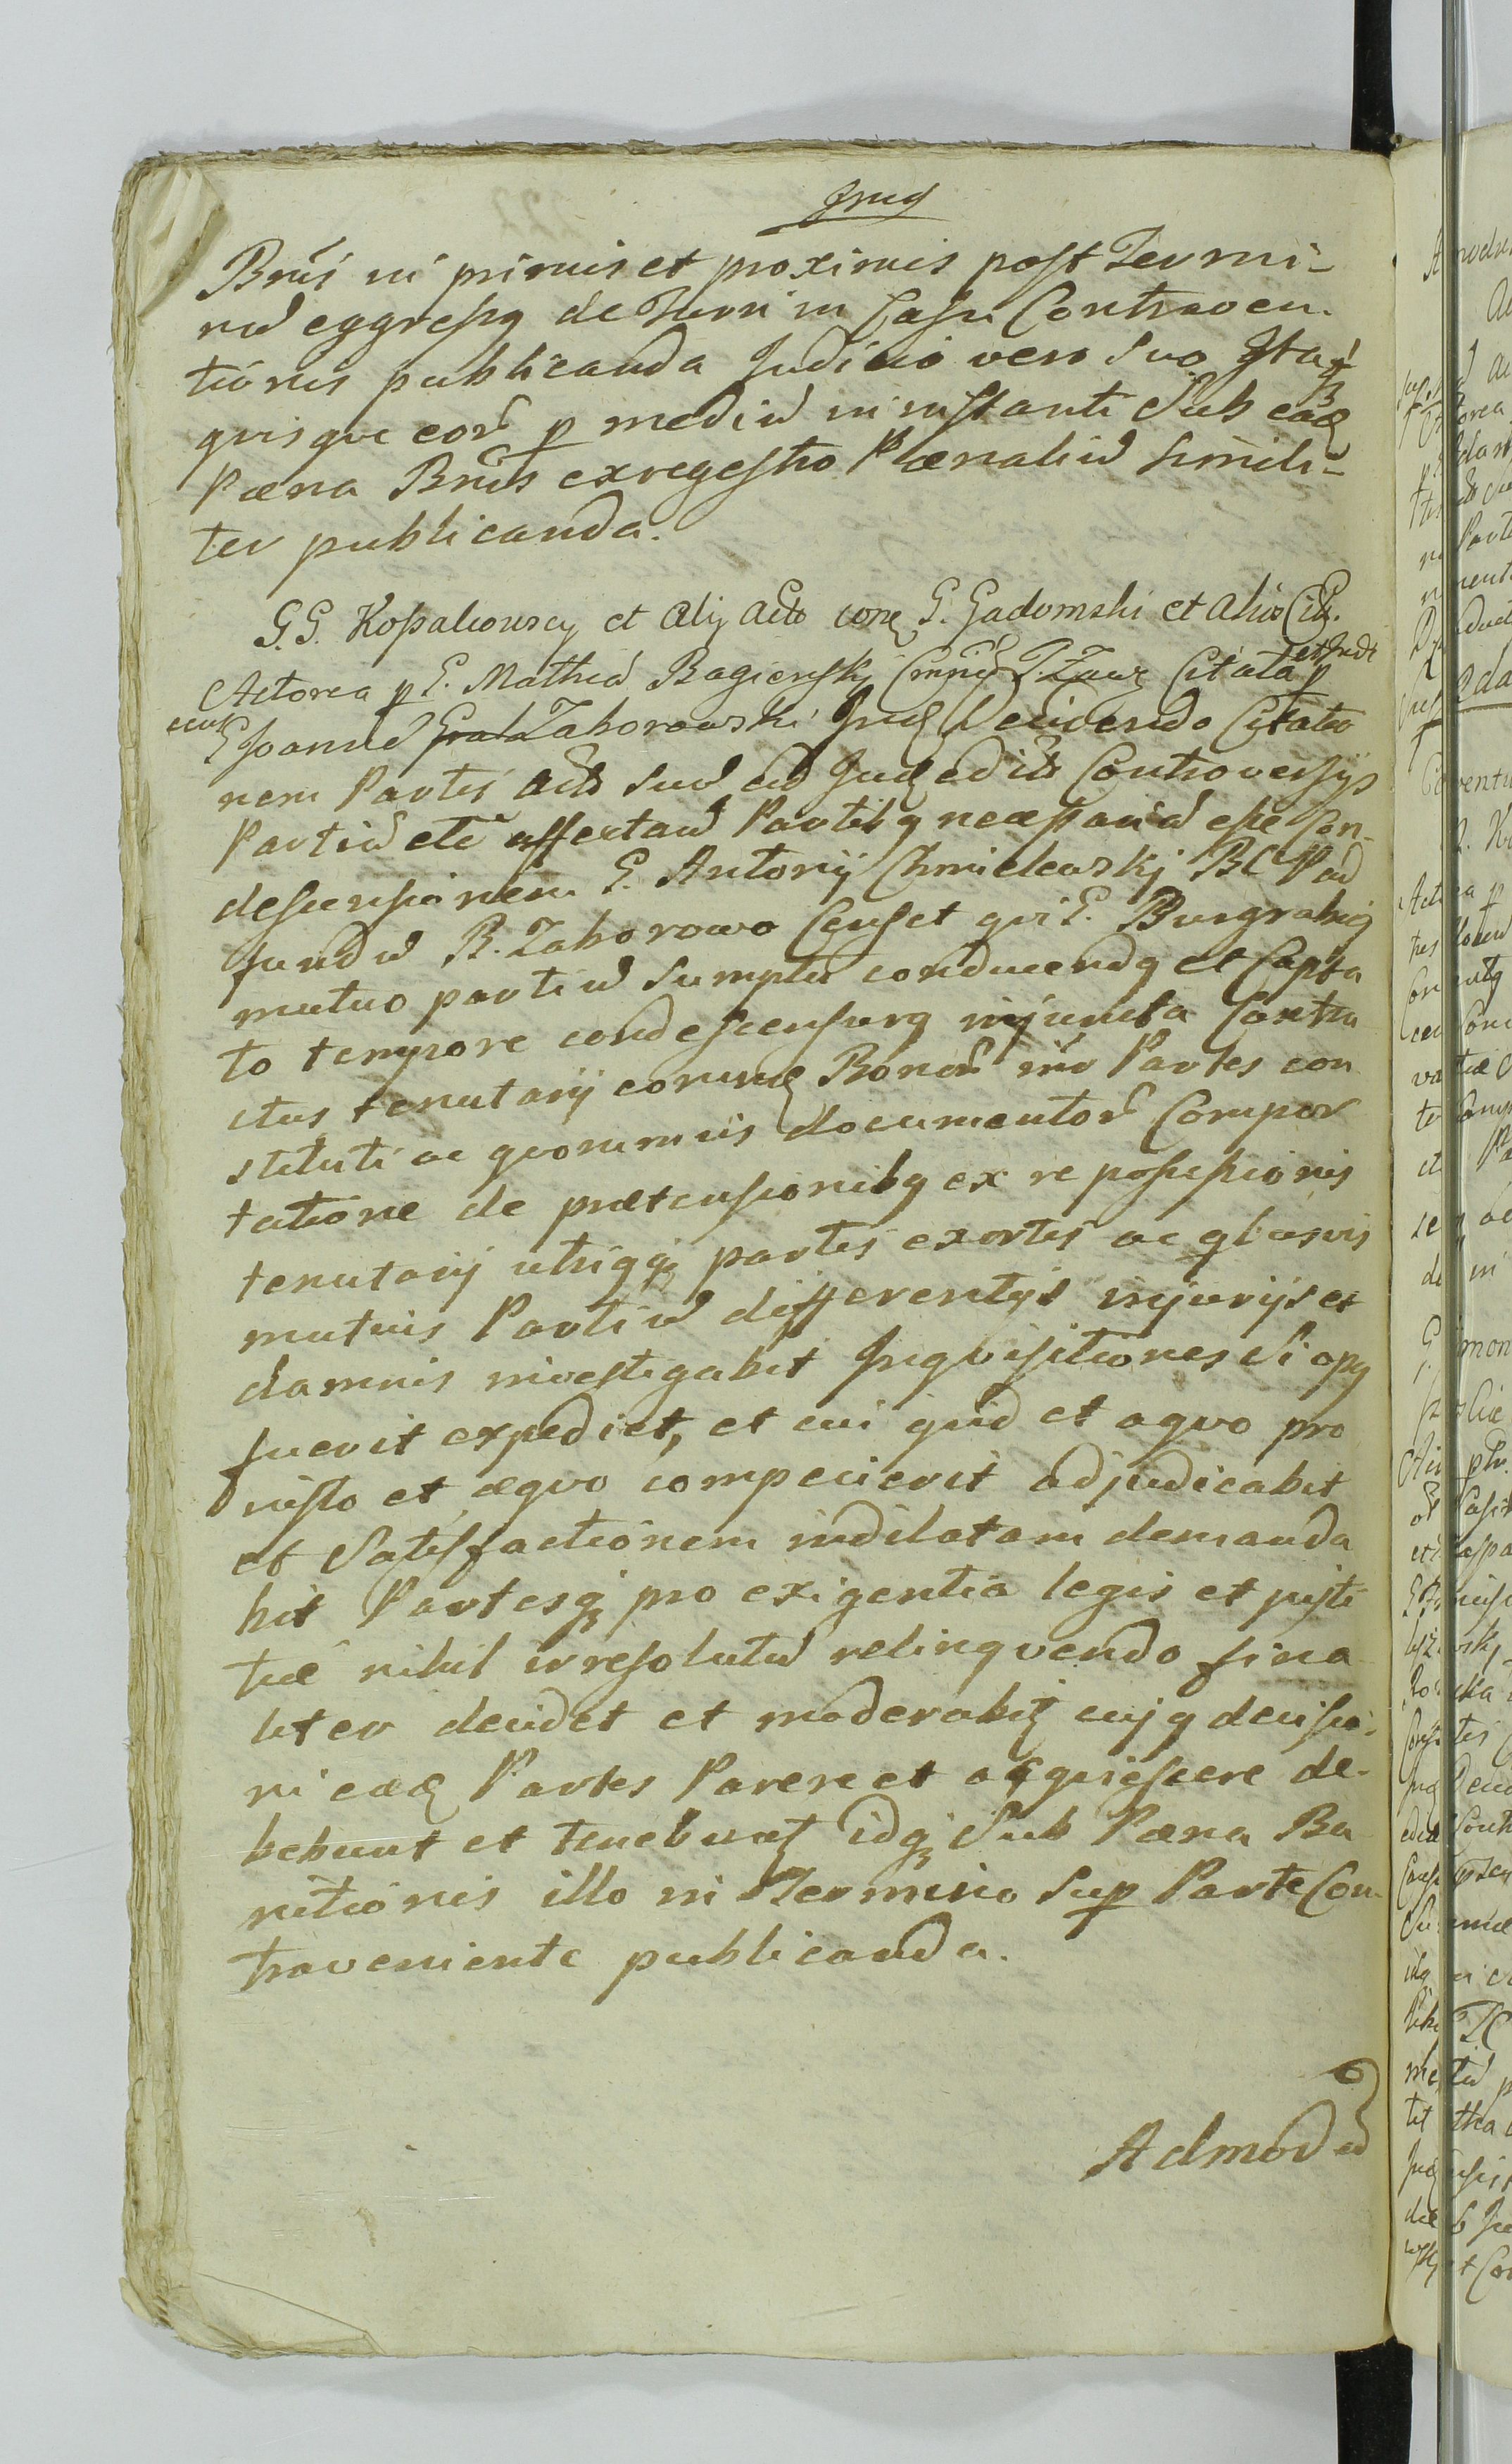 Bnĩs in primis et proximis post Termi-
nũ eggressq̨ de Terr̃ in Casu Contraven-
tionis publicanda Judicio vero suo
quisque eor̃ p mediũ in instanti Sub eadẽ
Pæna Bnĩs ex regestro Pænaliũ simili-
ter publicanda.
G.G. Kossakowscy et Alij Actõ conẽ G. Gadomski et Alios Citt.
Actorea p G. Mathiã Bagieński Citata p
G Joannẽ Zaborowski Jud decidendo Citatio
nem Partis Actõ suũ ad Jud edittõ Controversijs
Partiũ etc affectatã Partibq neæssariã esse Con-
descensionem G. Antonij Chmielewskj BC P ad
fundũ B. Zaborowo Censet qui G. Burgrabiq
mutuo partiũ sumptu conducendq et Capta
to tempore condescensurq injuncta Contra
ctus tenutarij eorundẽ Bonor̃ intr Partes con
stituti ac quorumvis documentor̃ Compor
tatione de prætensionibq ex re possessionis
tenutarij utriqq partis exortis ac qbusvis
mutuis Partiũ differentijs injurijs et
damnis investigabit Inquisitiones Si opq
fuerit expediet, et cui quid et a quo pro
justo et æquo compecierit adjudicabit
et Satisfactionem indilatam demanda
bit Partesq pro exigentia legis et justi
tiæ nihil irresolutũ relinquendo fina
liter decidet et moderabitꝫ cujq decisio-
ni eædẽ Partes Parere et acquiescere de-
bebunt et tenebunt idq Sub Pæna Ba
nitionis illo in Termino Sup Parte Con-
traveniente publicanda.
Admodũ